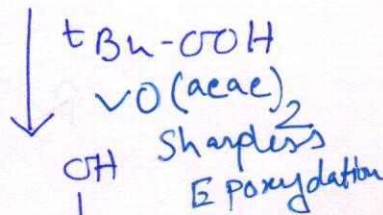 tBu-OOH
VO(acac)2
Sharpless
Epoxydation
OH